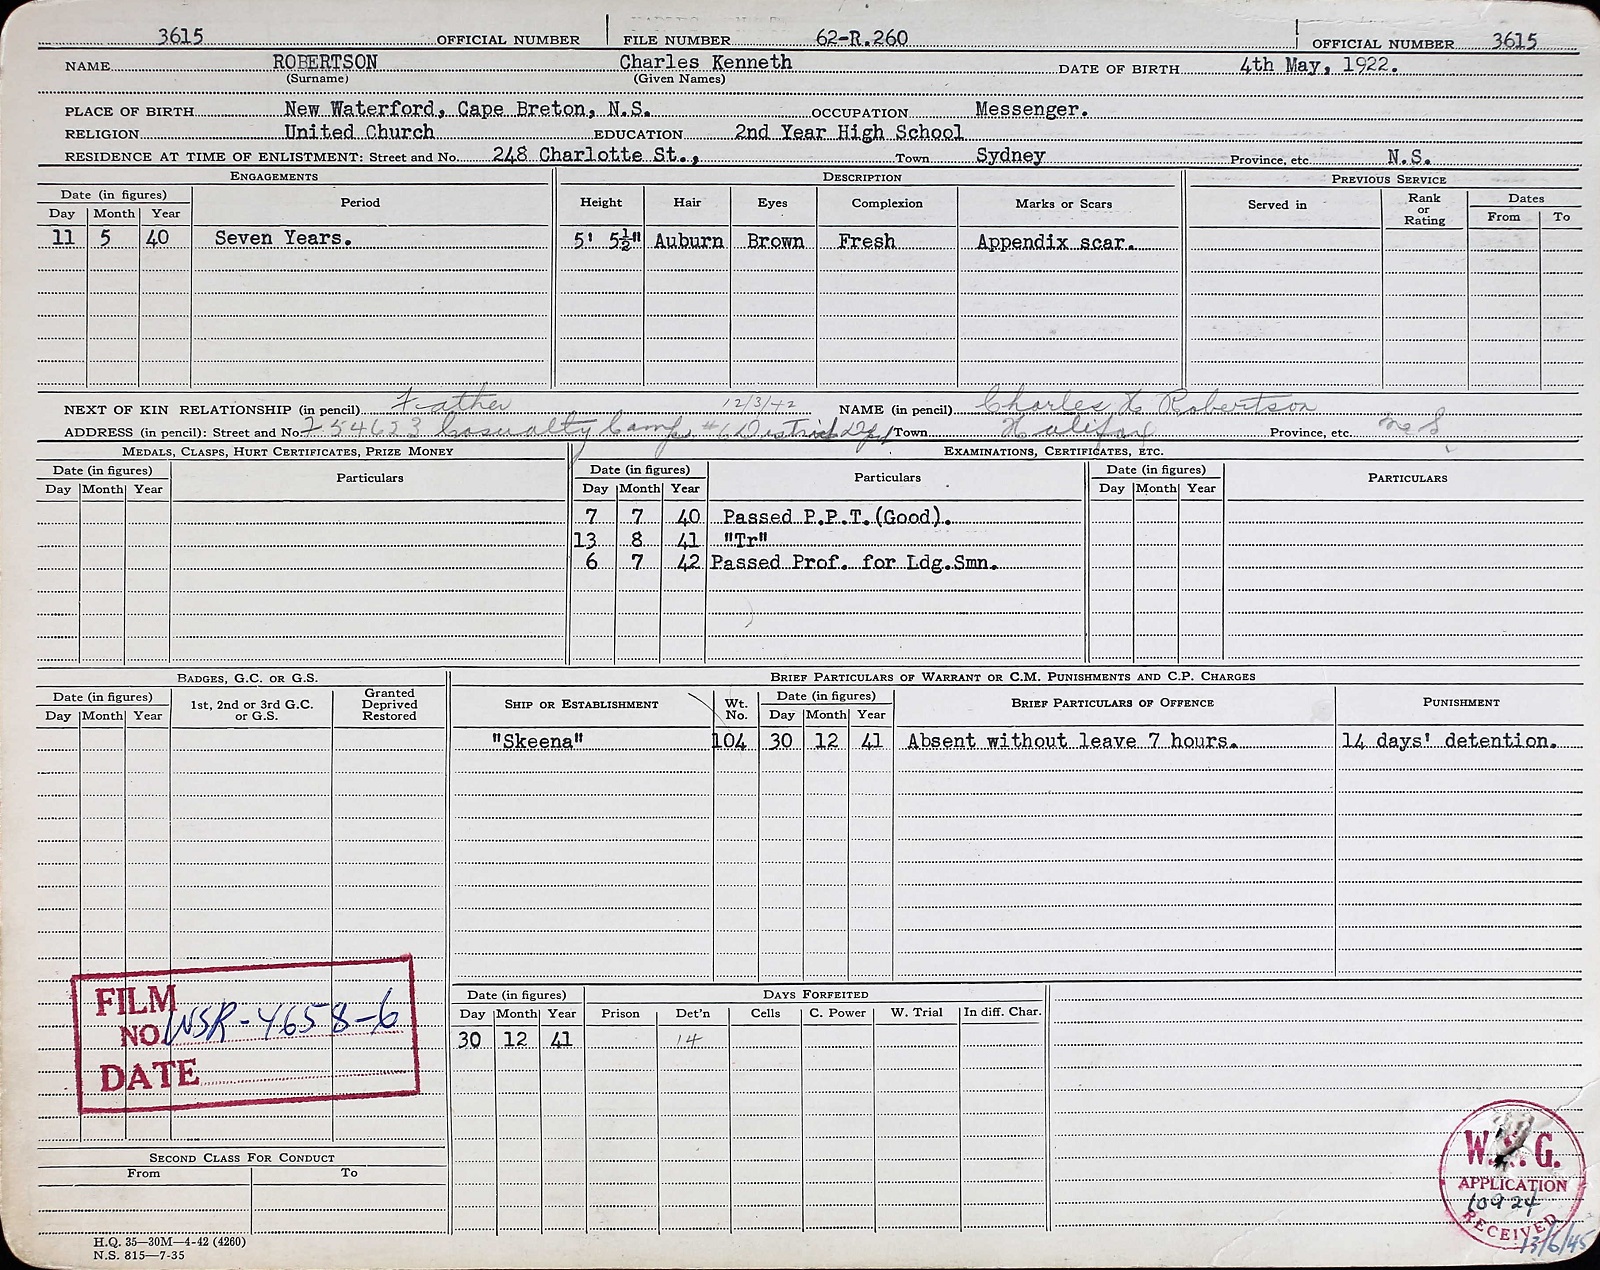 3615 OFFICIAL NUMBER FILE NUMBER 62-R.260 OFFICIAL NUMBER 3615
NAME ROBERTSON Charles Kenneth DATE OF BIRTH 4th May, 1922.
(Surname) (Given Names)
PLACE OF BIRTH New Waterford, Cape Breton, N.S. OCCUPATION Messenger.
RELIGION United Church EDUCATION 2nd Year High School
RESIDENCE AT TIME OF ENLISTMENT: Street and No. 248 Charlotte St., Town Sydney Province, etc N.S.
ENGAGEMENTS DESCRIPTION PREVIOUS SERVICE
Date (in figures) Period Height Hair Eyes Complexion Marks or Scars Served in Rank or Rating Dates
Day Month Year From To
11 5 40 Seven Years. 5' 5½" Auburn Brown Fresh Appendix scar.
NEXT OF KIN RELATIONSHIP (in pencil) Father 12/3/42 NAME (in pencil) Charles H Robertson
ADDRESS (in pencil): Street and No. F 54623 Casualty Camp #6 District Dpt Town Halifax Province, etc. N.S.
MEDALS, CLASPS, HURT CERTIFICATES, PRIZE MONEY EXAMINATIONS, CERTIFICATES, ETC.
Date (in figures) Particulars Date (in figures) Particulars Date (in figures) PARTICULARS
Day Month Year Day Month Year Day Month Year
7 7 40 Passed P.P.T.(Good).
13 8 41 "Tr"
6 7 42 Passed Prof. for Ldg.Smn.
BADGES, G.C. OR G.S. BRIEF PARTICULARS OF WARRANT OR C.M. PUNISHMENTS AND C.P. CHARGES
Date (in figures) 1st, 2nd or 3rd G.C. or G.S. Granted Deprived Restored SHIP OR ESTABLISHMENT Wt. No. Date (in figures) BRIEF PARTICULARS OF OFFENCE PUNISHMENT
Day Month Year Day Month Year
"Skeena" 104 30 12 41 Absent without leave 7 hours. 14 days' detention.
FILM
NO. NSR-4658-6
DATE
Date (in figures) DAYS FORFEITED
Day Month Year Prison Det'n Cells C. Power W. Trial In diff. Char.
30 12 41 14
SECOND CLASS FOR CONDUCT
From To
W. G.
APPLICATION
10924
RECEIVED
13/6/45
H.Q. 35—30M—4-42 (4260)
N.S. 815—7-35